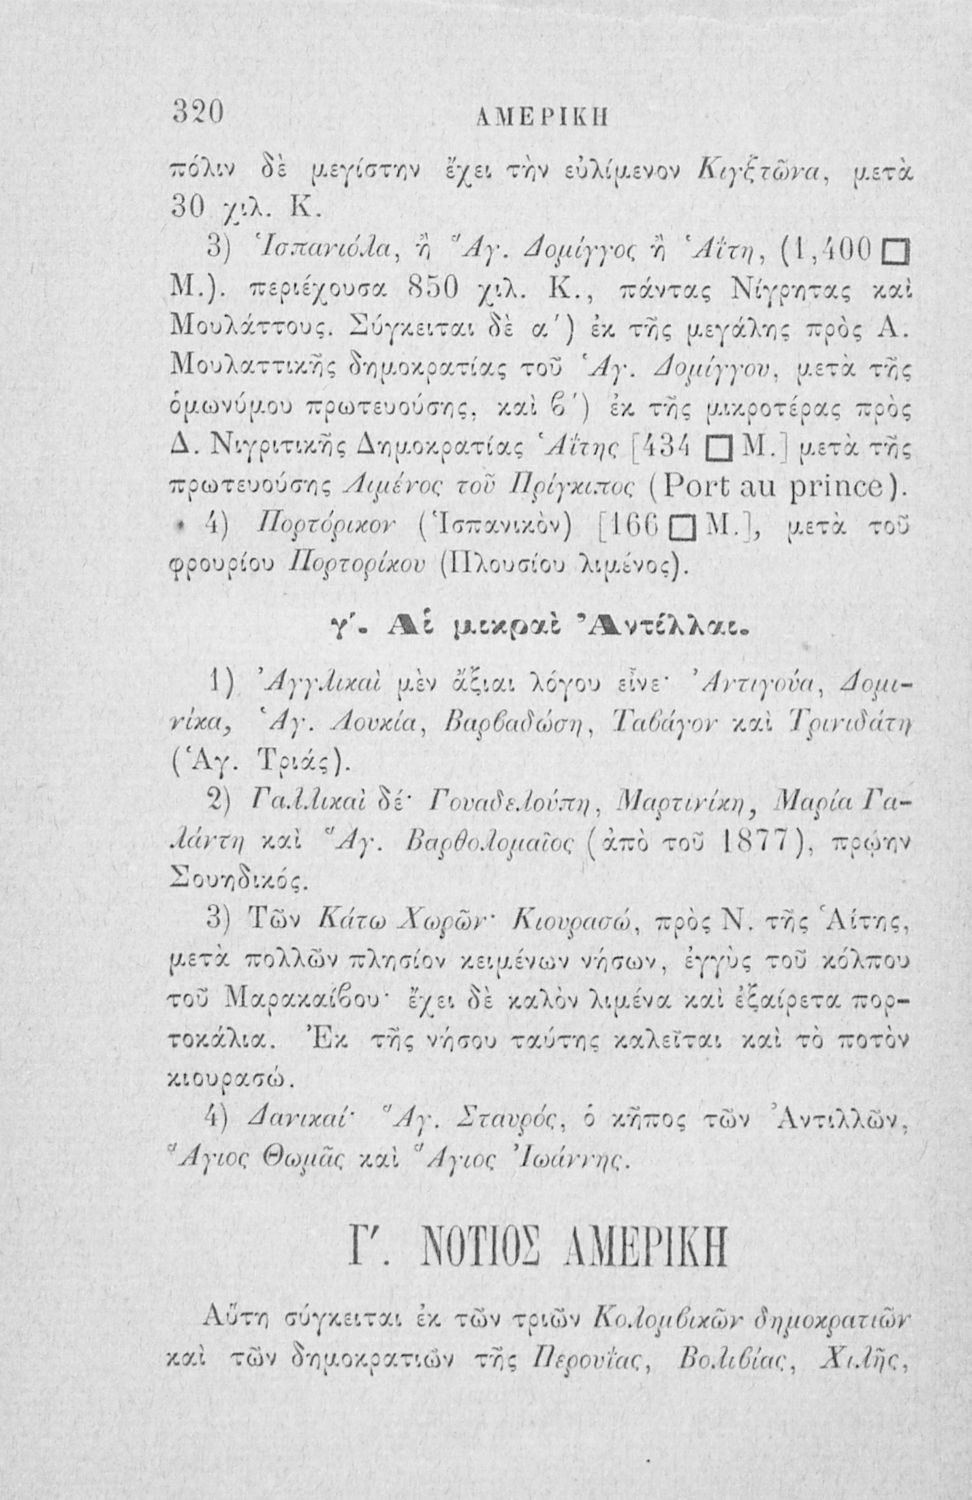 320 ΑΜΕΡΙΚΗ
πόλιν δὲ μεγίστην ἔχει τὴν εὐλίμενον Κιγξτῶνα, μετὰ
30 χιλ. Κ.
3) Ἱσπανιόλα, ἢ Ἅγ. Δομίγγος ἢ Ἁΐτη, (1,400 □
Μ.). περιέχουσα 850 χιλ. Κ., πάντας Νίγρητας καὶ
Μουλάττους. Σύγκειται δὲ α΄) ἐκ τῆς μεγάλης πρὸς Α.
Μουλαττικῆς δημοκρατίας τοῦ Ἁγ. Δομίγγου, μετὰ τῆς
ὁμωνύμου πρωτευούσης, καὶ ϐ΄) ἐκ τῆς μικροτέρας πρὸς
Δ. Νιγριτικῆς Δημοκρατίας Ἁΐτης [434 □ Μ.] μετὰ τῆς
πρωτευούσης Λιμένος τοῦ Πρίγκιπος (Port au prince).
4) Πορτόρικον (Ἱσπανικὸν) [166 □ Μ.], μετὰ τοῦ
φρουρίου Πορτορίκου (Πλουσίου λιμένος).
γ΄. Αἱ μικραὶ Ἀντέλλαι.
1) Ἀγγλικαὶ μὲν ἄξιαι λόγου εἶνε· Ἀντιγούα, Δομι-
νίκα, Ἁγ. Λουκία, Βαρϐαδώση, Ταϐάγον καὶ Τρινιδάτη
(Ἁγ. Τριάς).
2) Γαλλικαὶ δέ· Γουαδελούπη, Μαρτινίκη, Μαρία Γα-
λάντη καὶ Ἅγ. Βαρθολομαῖος (ἀπὸ τοῦ 1877), πρῴην
Σουηδικός.
3) Τῶν Κάτω Χωρῶν· Κιουρασώ, πρὸς Ν. τῆς Ἁίτης,
μετὰ πολλῶν πλησίον κειμένων νήσων, ἐγγὺς τοῦ κόλπου
τοῦ Μαρακαίϐου· ἔχει δὲ καλὸν λιμένα καὶ ἐξαίρετα πορ-
τοκάλια. Ἐκ τῆς νήσου ταύτης καλεῖται καὶ τὸ ποτὸν
κιουρασώ.
4) Δανικαί· Ἅγ. Σταυρός, ὁ κῆπος τῶν Ἀντιλλῶν,
Ἅγιος Θωμᾶς καὶ Ἅγιος Ἰωάννης.
Γ΄. ΝΟΤΙΟΣ ΑΜΕΡΙΚΗ
Αὕτη σύγκειται ἐκ τῶν τριῶν Κολομϐικῶν δημοκρατιῶν
καὶ τῶν δημοκρατιῶν τῆς Περουΐας, Βολιϐίας, Χιλῆς,